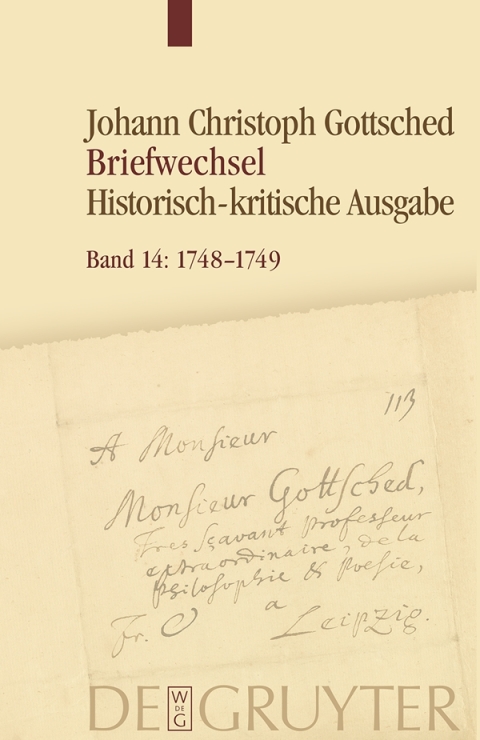 Johann Christoph Gottsched
Briefwechsel
Historisch-kritische Ausgabe
Band 14: 1748–1749
113
A Monsieur
Monsieur Gottsched,
Tres sçavant Professeur
extraordinaire, de la
Philosophie & Poesie,
a
Fr. Leipzig.
DE GRUYTER
W
DE
G